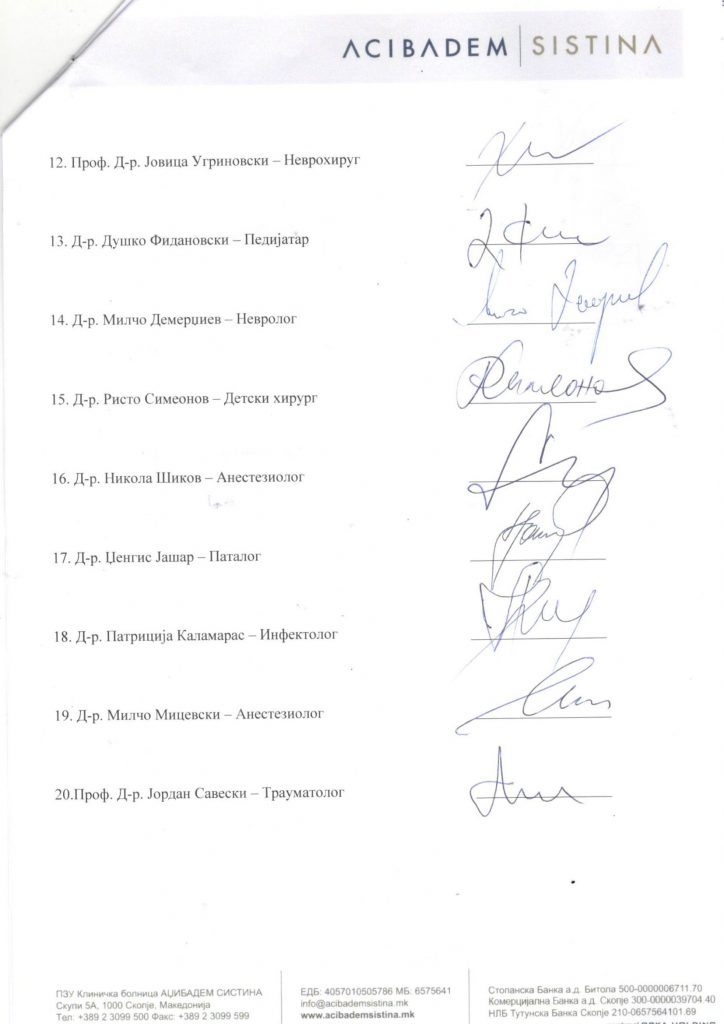 ACIBADEM | SISTINA
12. Проф. Д-р. Јовица Угриновски – Неврохируг
13. Д-р. Душко Фидановски – Педијатар
14. Д-р. Милчо Демерџиев – Невролог
15. Д-р. Ристо Симеонов – Детски хирург
16. Д-р. Никола Шиков – Анестезиолог
17. Д-р. Џенгис Јашар – Паталог
18. Д-р. Патриција Каламарас – Инфектолог
19. Д-р. Милчо Мицевски – Анестезиолог
20.Проф. Д-р. Јордан Савески – Трауматолог
ПЗУ Клиничка болница АЏИБАДЕМ СИСТИНА
Скупи 5А, 1000 Скопје, Македонија
Тел: +389 2 3099 500 Факс: +389 2 3099 599
ЕДБ: 4057010505786 МБ: 6575641
info@acibademsistina.mk
www.acibademsistina.mk
Стопанска Банка а.д. Битола 500-0000006711.70
Комерцијална Банка а.д. Скопје 300-0000039704 40
НЛБ Тутунска Банка Скопје 210-0657564101.69